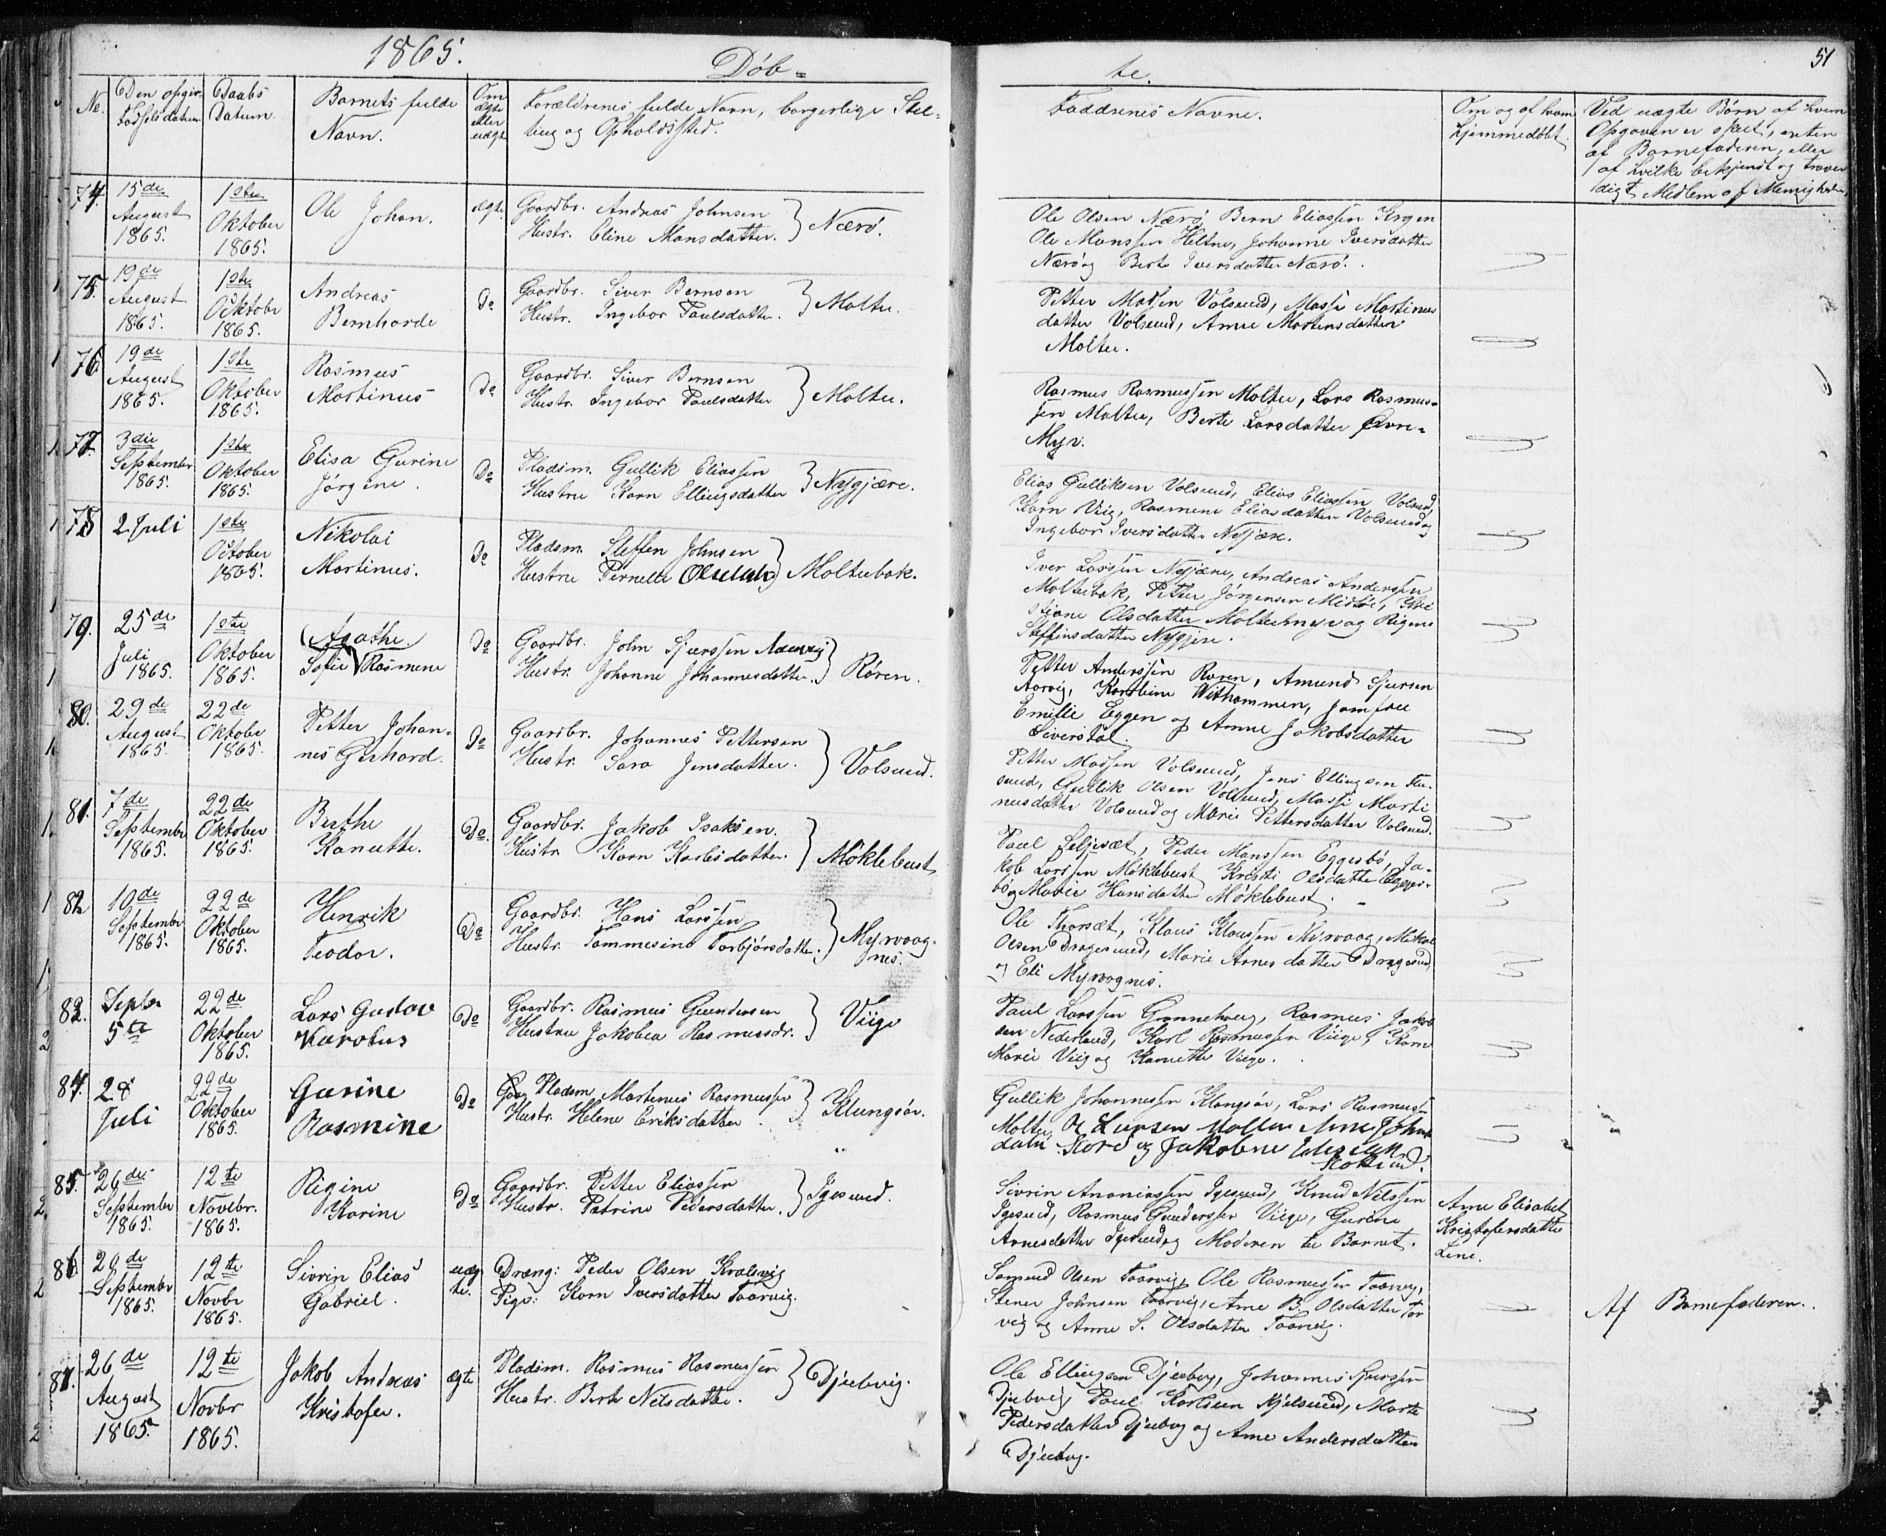 1865.
Døb=
te.
51
No.
Den opgiv. Fødselsdatum
Daabs Datum.
Barnets fulde Navn.
Om ægte eller uægte
Forældrenes fulde Navn, borgerlige Stilling og Opholdssted.
Faddrenes Navne.
Om og af hvem hjemmedøbt.
Ved uægte Børn af hvem
Opgaven er skeet, enten
af Barnefaderen, eller
af hvilke bekjendt og troværdigt Medlem af Menigheden
74. 15de August 1865. 1ste Oktober 1865. Ole Johan. ægte
Gaardbr. Andreas Johnsen
Hustr. Eline Mansdatter. } Nærø.
Ole Olsen Nærø, Bern Eliassen
Ole Manssen Heltne, Johanne Iversdatter
Nærø og Berte Iversdatter Nærø.
75. 19de August 1865. 1ste October 1865. Andreas Bernharde Do
Gaardbr. Siver Bernsen
Hustr. Ingebor Paulsdatter. } Moltu.
Petter Madsen Volsund, Massi Martinus
datter Volsund, Anne Mortensdatter
Moltu.
76. 19de August 1865. 1ste Oktober 1865. Rasmus Martinus Do
Gaardbr. Siver Bernsen
Hustr. Ingebor Paulsdatter } Moltu.
Rasmus Rasmussen Moltu, Lars Rasmus-
sen Moltu, Berte Larsdatter Øvre-
Myr.
77. 3die September 1865. 1ste Oktober 1865. Elisa Gurine Jørgine. Do
Pladsm. Gullik Eliassen
Hustru Karn Ellingsdatter } Nygjære.
Elias Gulliksen Volsund, Elias Eliassen Volsund,
Karn Viig, Rasmine Eliasdatter Volsund og
Ingebor Iversdatter Nyjære.
78 2 Juli 1ste October 1865. Nikolai Martinus. Do
Pladsm. Steffen Johnsen
Hustru Pernelle Olsdatter } Moltubak.
Iver Larssen Nyjære, Andreas Anderssen
Moltubak, Petter Jørgensen
Olsdatter Moltumyr og Rigine
Steffensdatter Nygjere.
79. 25de Juli 1865. 1ste Oktober 1865. (Agathe) Sofie Rasmine Do
Gaardbr. John Sjurssen Aarvig
Hustr. Johanne Johannesdatter. } Røren.
Petter Anderssen Røren, Amund Sjursen
Aarvig, Karoline Withammen, Jomfrue
Emilie Eggen og Anne Jakobsdatter
Siverstøl.
80. 29de August 1865. 22de Oktober 1865. Petter Johan-
nes Gerhard. Do
Gaardbr. Johannes Pettersen
Hustr. Sara Jensdatter. } Volsund.
Petter Madsen Volsund, Jens Ellingsen
sund, Gullik Olsen Volsund, Massi Marti
nusdatter Volsund og Marie Pettersdatter Volsund.
81. 7de September 1865. 22de Oktober 1865. Berthe Kanutte. Do.
Gaardbr. Jakob Isaksen.
Hustr. Karn Karlsdatter. } Møklebust
Paul Seljesæt, Peder Manssen Eggesbø, Ja-
kob Larssen Møklebust, Kristi Olsdatter Egges-
bø og Marie Hansdatter Møklebust.
82 10de September 1865. 22de Oktober 1865. Henrik Teodor. Do
Gaardbr. Hans Larssen
Hustr. Tommesine Torbjørsdatter. } Myrvaag-
nes.
Ole Thorsæt, Klaus Klaussen Myrvaag, Mikal
Olsen Dragesund, Marie Arnesdatter Dragesund
og Eli Myrvognes.
83. Septbr 5te 22de Oktober 1865. Lars Gustav Karolus Do
Gaardbr. Rasmus Gundersen
Hustru Jakobea Rasmusdr. } Viige
Paul Larssen Grønnehoug, Rasmus Jakob
sen Nederland, Karl Rasmussen Viige, Karn
Marie Viig og Kanutte Viige.
84. 28 Juli 22de Oktober 1865. Gurine Rasmine Do
Pladsm Martinus Rasmussen
Hustr. Helene Eriksdatter. } Klungsør.
Gullik Johannessen Klungsør, Lars Rasmussen
Moltu, Ol Larsen Moltu Ane Johns
datr og Jakobine
85. 26de September 1865. 12te Novebr. 1865. Regine Karine Do
Gaardbr. Petter Eliassen
Hustr. Patrine Pedersdatter. } Igesund.
Sivrin Ananiassen Igesund, Knud Nilssen
Igesund, Rasmus Gunderssen Viige, Gurine
Arnesdatter Igesund og Moderen til Barnet.
Ane Elisabet
Kristofersdatter
Line.
86. 20de September 1865. 12te Novbr 1865. Sivrin Elias Gabriel. uægte.
Dreng: Peder Olsen Kvalsvig
Pige: Karn Iversdatter Taarvig.
Samund Olsen Taarvig, Ole Rasmussen Taarvig,
Stener Johnsen Taarvig, Ane B. Olsdatter Tor
vig og Anne S. Olsdatter Taarvig.
Af Barnefaderen.
87. 26de August 1865. 12te Novbr 1865. Jakob Andreas Kristofer. ægte
Pladsm. Rasmus Rasmussen
Hustr. Berte Nilsdatter. } Djubvig.
Ole Ellingsen Djubvig, Johannes Sjurssen
Djubvig, Paul Karlsen Kjelsund, Marte
Pedersdatter Djubvig og Ane Andersdatter
Djubvig.